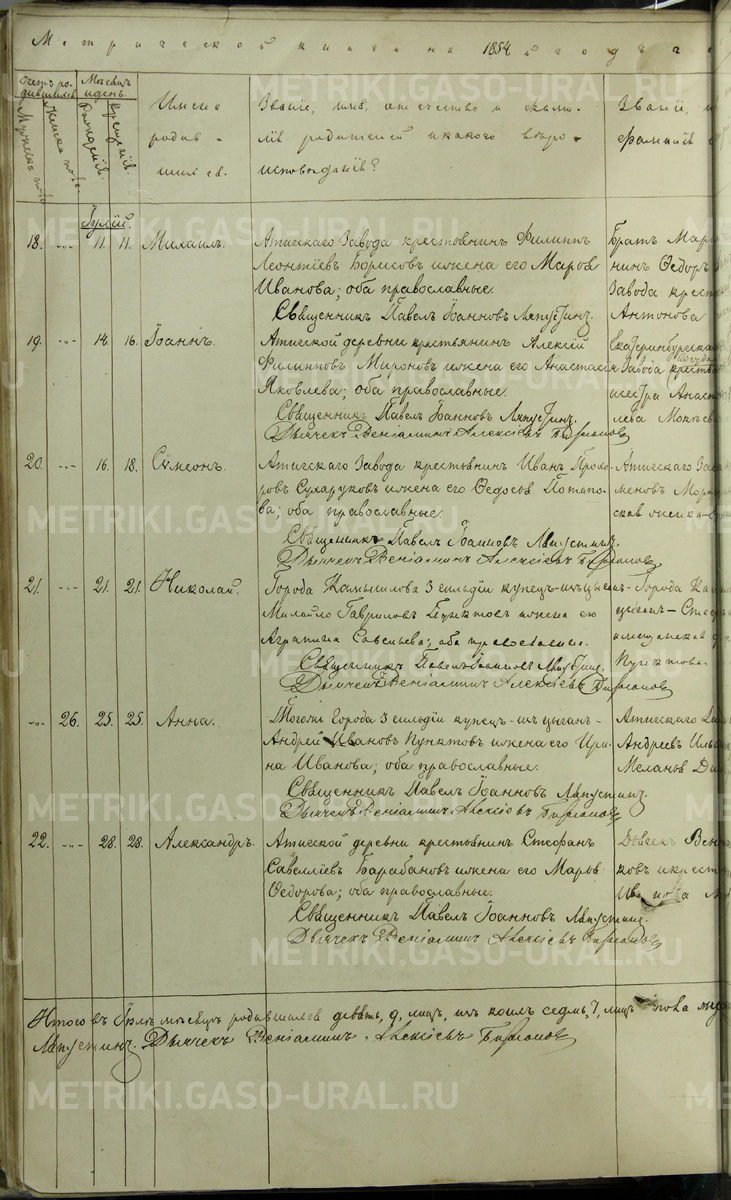 Метрической книги на 1854й годъ
Счетъ ро-
дившихся.
Мужеска пола.
Женска пола.
Мѣсяцъ
и день.
Рожденія.
Крещенія.
Имена
родив-
шихся.
Званіе, имя, отчество и фами-
лія родителей и какого вѣро-
исповѣданія?
Званіе, и
фамилія
Іулій.
18. -.- 11. 11. Михаилъ. Атигскаго Завода крестьянинъ Филиппъ
Леонтіевъ Борисовъ и жена его Марья
Иванова; оба православные.
Священникъ Павелъ Іоанновъ Ляпустинъ.
Братъ Мар
нинъ Ѳедоръ
Завода крест
Антонова
19. -.- 14. 16. Іоаннъ. Атигской деревни крестьянинъ Алексій
Филипповъ Мироновъ и жена его Анастасія
Яковлева; оба православные.
Священникъ Павелъ Іоанновъ Ляпустинъ.
Дьячекъ Веніаминъ Алексіевъ
Екатеринбургска
Завода крестья
и сестра Анаст
лева
20. -.- 16. 18. Сѵмеонъ. Атигскаго Завода крестьянинъ Иванъ Прохо-
ровъ Сухаруковъ и жена его Ѳедосья Потапо-
ва; оба православные.
Священникъ Павелъ Іоанновъ Ляпустинъ.
Дьячекъ Веніаминъ Алексіевъ
Атигскаго Зав
меновъ
21. -.- 21. 21. Николай. Города Камышлова 3 гильдіи купецъ-изъ цыганъ-
Михайло Гавриловъ Пунктовъ и жена его
Агрипина Савельева; оба православные.
Священникъ Павелъ Іоанновъ Ляпустинъ.
Дьячекъ Веніаминъ Алексіевъ
Города Ка
цыганъ - Стеф
Пунктова.
-.- 26. 25. 25. Анна. Тогожъ Города 3 гильдіи купецъ-изъ цыганъ-
Андрей Ивановъ Пунктовъ и жена его Ири-
на Иванова; оба православные.
Священникъ Павелъ Іоанновъ Ляпустинъ.
Дьячекъ Веніаминъ Алексіевъ
Атигскаго
Андреевъ
22. -.- 28. 28. Александръ. Атигской деревни крестьянинъ Стефанъ
Савелліевъ Барабановъ и жена его Марья
Ѳедорова; оба православные.
Священникъ Павелъ Іоанновъ Ляпустинъ.
Дьячекъ Веніаминъ Алексіевъ
Дьячекъ Вен
ковъ и крест
Иванова
Итого въ Іюлѣ мѣсяцѣ родившихся девять, 9, лицъ, изъ коихъ седмь, 7, лицъ
Ляпустинъ. Дьячекъ Веніаминъ Алексіевъ
METRIKI.GASO-URAL.RU